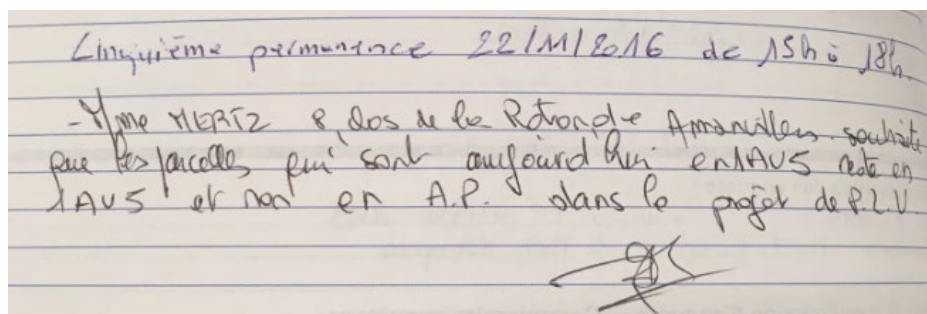 Cinquième permanence 22/11/2016 de 15h à 18h.
- Mme HERTZ 8, clos de la Rotonde Amanvillers souhaite
que les parcelles qui sont aujourd'hui en 1AU5 reste en
1AU5 et non en A.P. dans le projet de P.L.U.